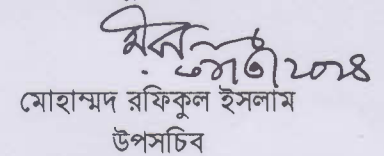 মোহাম্মদ রফিকুল ইসলাম
উপসচিব